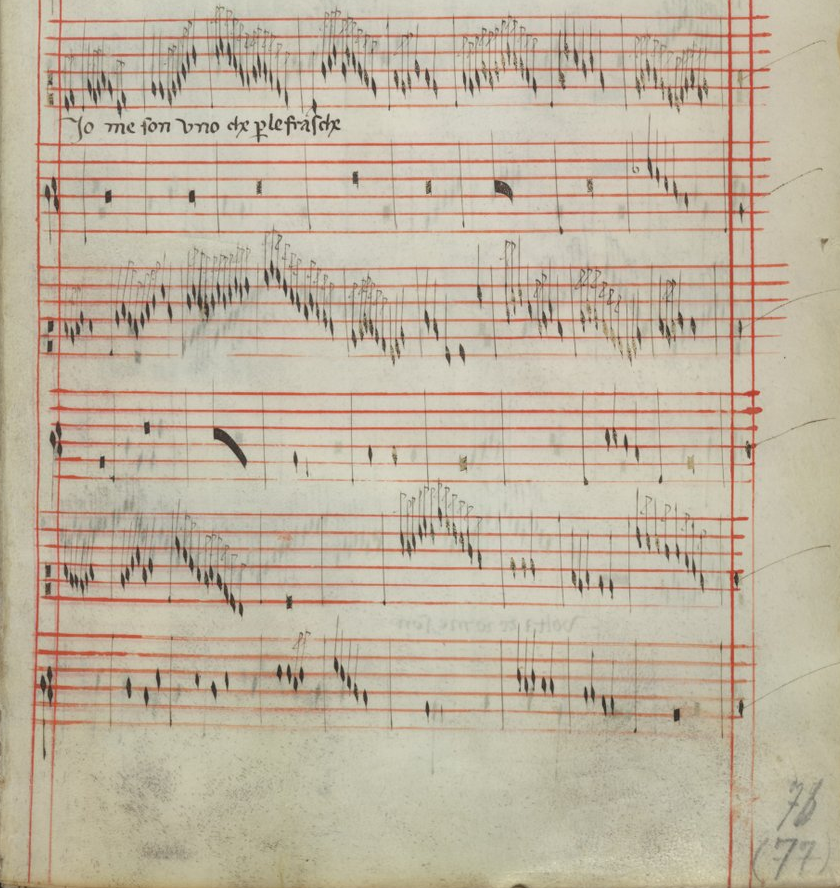 Jo me son vno che ꝑ le frasche
76
(77)